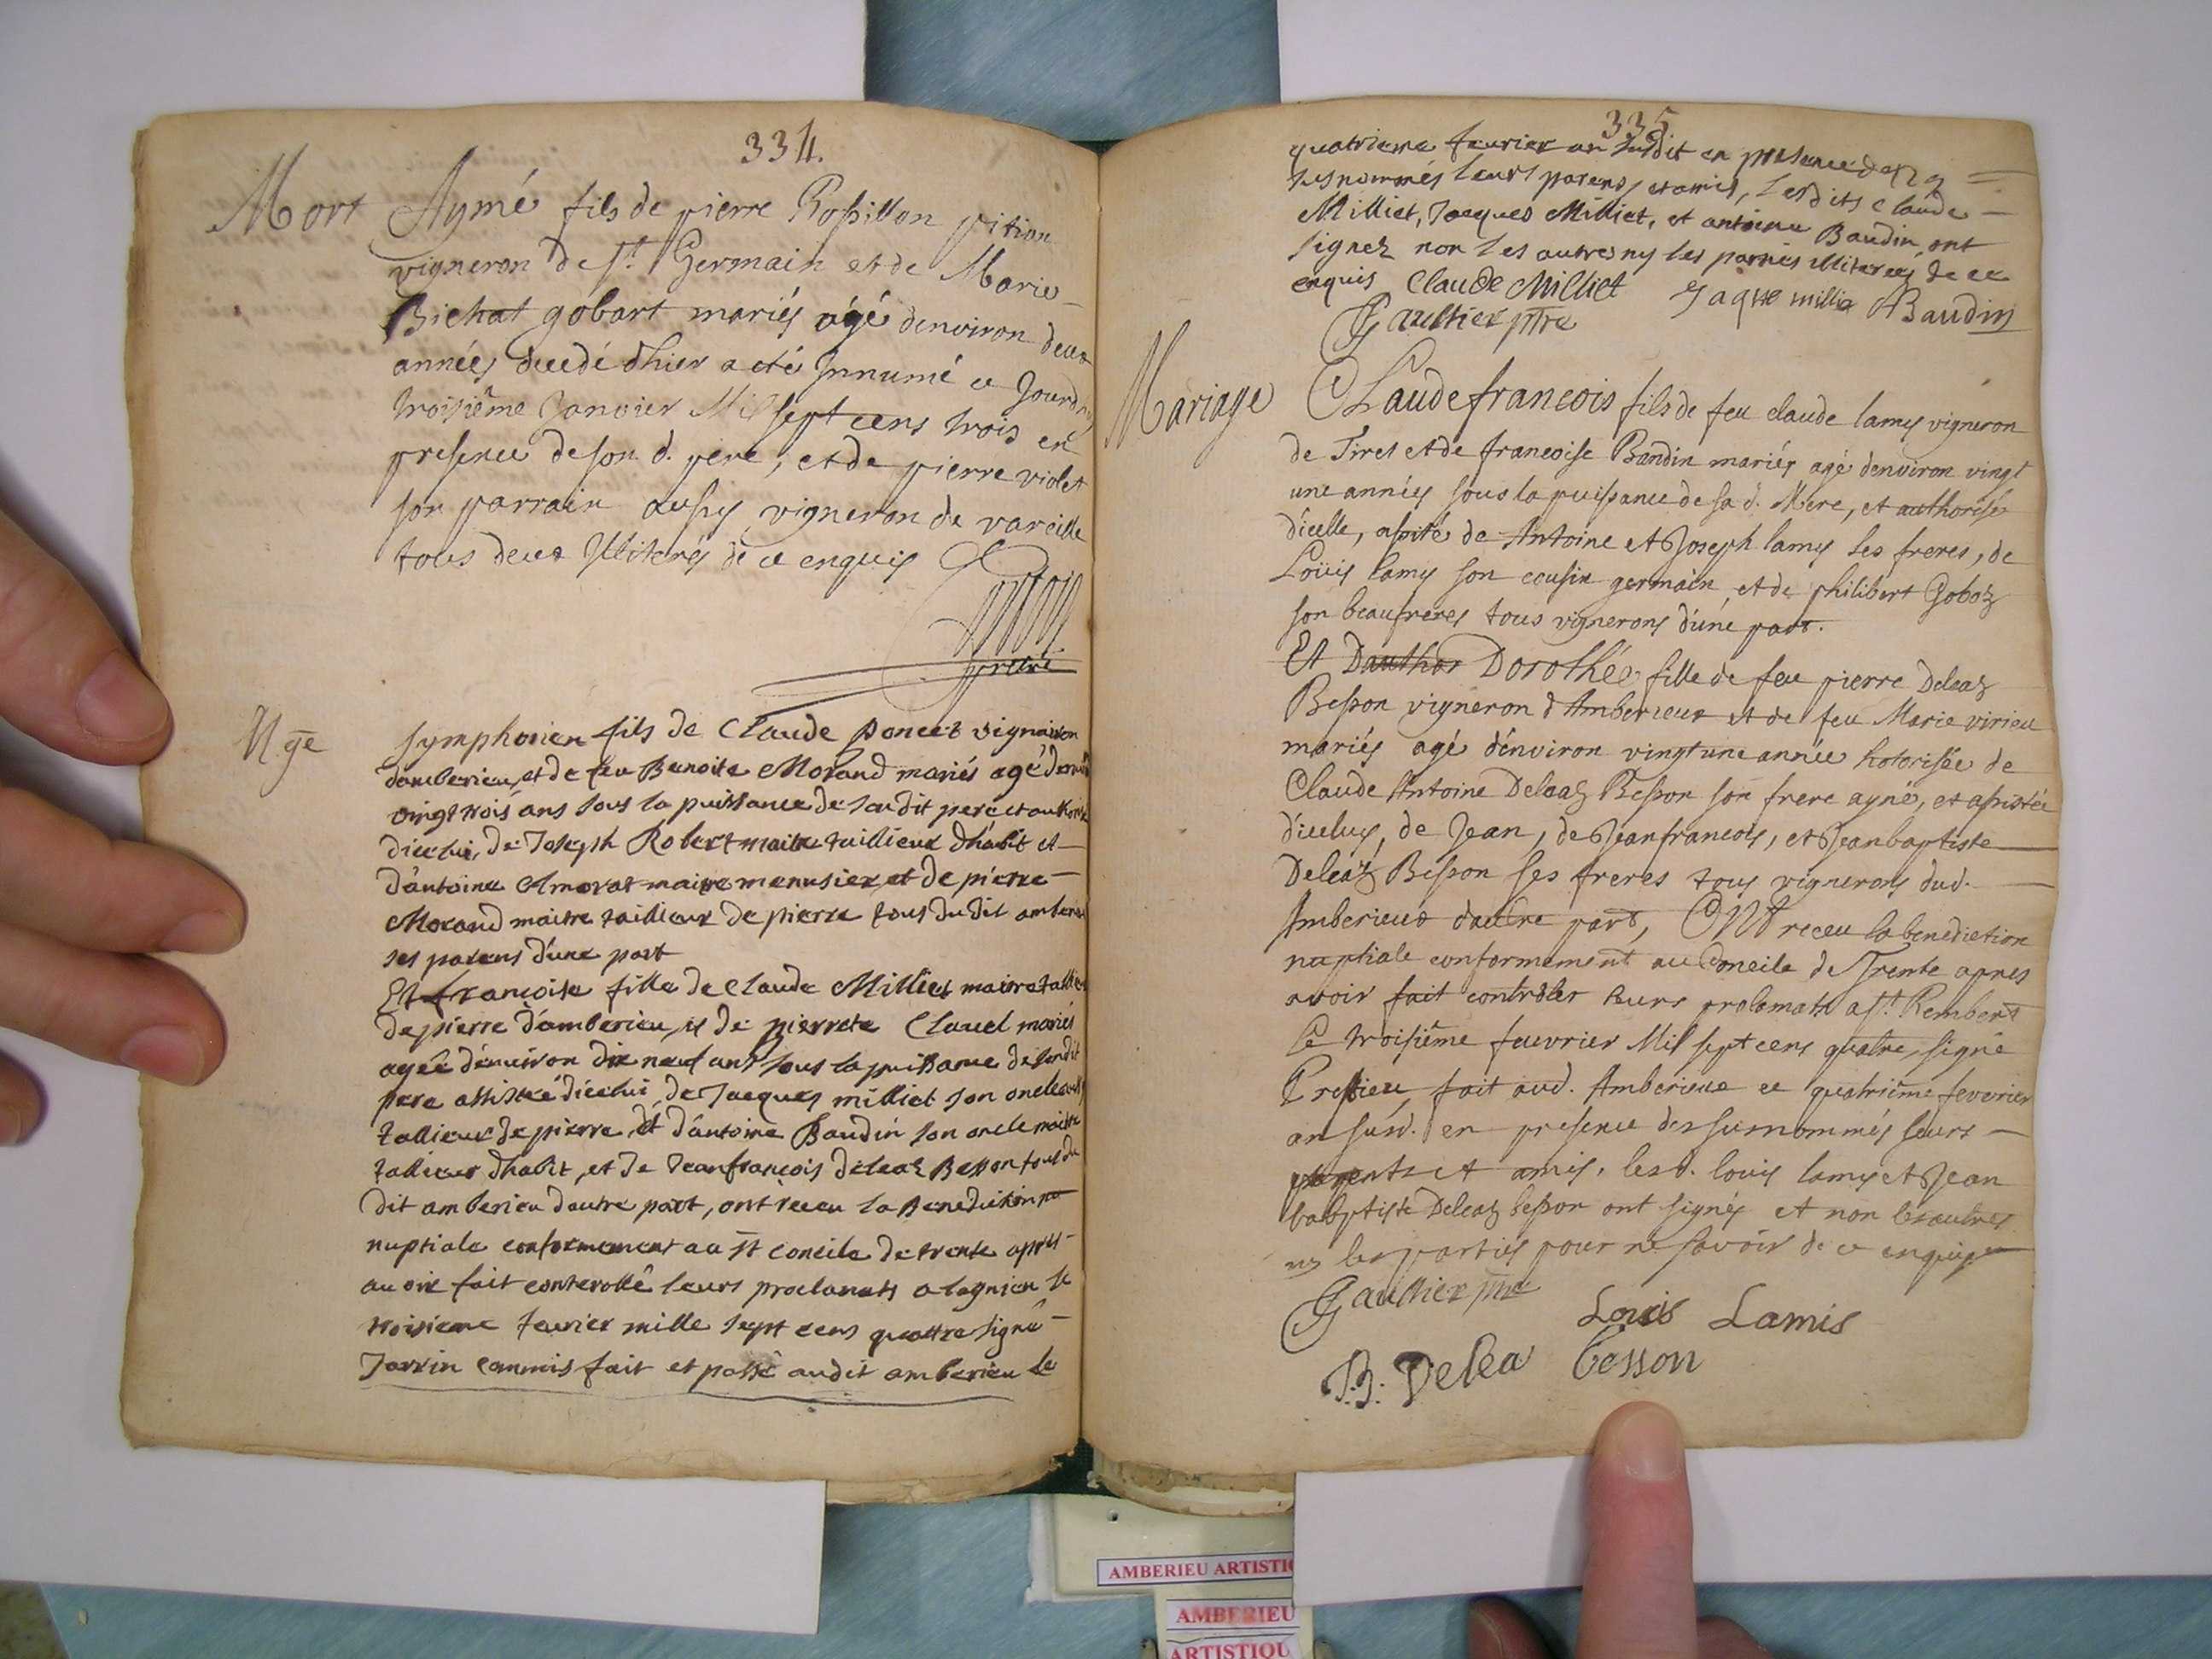 334.
Mort Aymé fils de pierre Rossillon pition
vigneron de st. Germain et de Marie
Bichat gobart mariés agé denviron deux
années decedé dhier a eté Innumé ce Jourdhuy
troisiême Janvier Mil sept cens trois en
presence de son d. pere, et de pierre violet
son parrain aussy vigneron de vareille
tous deux Illiterés de ce enquis
pretre
M.ge Symphorien fils de Claude Poncet vigneron
damberieu, et de feu Benoite Morand mariés agé denviron
vingt trois ans sous la puissance de sondit pere et authorisé
dicelui, de Joseph Robert maitre taillieur dhabit et
d'antoine Amorat maitre menusier et de pierre
Morand maitre taillieur de pierre tous dudit amberieu
ses parens d'une part
Et francoise fille de Claude Milliet maitre tallieur
de pierre d'amberieu, et de pierrete Clauel mariés
agée d'enuiron dix neuf ans sous la puissance de sondit
pere assistée dicelui, de Jacques milliet son oncle aussy
tallieur de pierre, et d'antoine Baudin son oncle maitre
tallieur dhabit, et de Jeanfrançois deleaz Besson tous du
dit amberieu dautre part, ont receu la Benediction
nuptiale conformement au st concile de trente apres
auoir fait conterollé leurs proclamats a lagnieu le
troisieme feurier mille sept cens quattre signé
Jarrin commis fait et passé audit amberieu le
335
quatrieme feurier an susdit en presence des
susnommés leurs parens et amis, lesdits Claude
Milliet, Jacques Milliet, et antoine Baudin ont
signez non les autres ny les parties illiterées de ce
enquis Claude Milliet Jaque millie ABaudin
Gaulthier ptre
Mariage Claudefrancois fils de feu claude lamy vigneron
de Tiret et de francoise Baudin mariés agé denviron vingt
une années sous la puissance de sa d. Mere, et authorisé
d'icelle, assité de Antoine et Joseph lamy ses freres, de
Loüis lamy son cousin germain, et de philibert Goboz
son beaufreres tous vignerons d'une part.
Et Dauthor Dorothée fille de feu pierre Deleaz
Besson vigneron d'Amberieux et de feu Marie virieu
mariés agé d'environ vingtune année hotorisée de
Claude Antoine Deleaz Besson son frere ayné, et assistée
d'iceluy, de Jean, de Jeanfrancois, et Jeanbaptiste
Deleaz Besson ses freres tous vignerons dud.
Amberieux dautre part, Ont receu la benediction
nuptiale conformement au Concile de Trente apres
avoir fait contrôler leurs prolomats a st. Rembert
le troisiême feuvrier Mil sept cens quatre, signé
Pressieu, fait aud. Amberieux ce quatriême feverier
an susd. en presence des surnommés leurs
parents et amis, lesd. louis lamy et Jean
babptiste Deleaz besson ont signés et non les autres
ny les parties pour ne savoir de ce enquis
Gaulthier ptre
Louis Lamis
J.B. Delea besson
AMBERIEU ARTISTI
AMBERIEU
ARTISTIQU